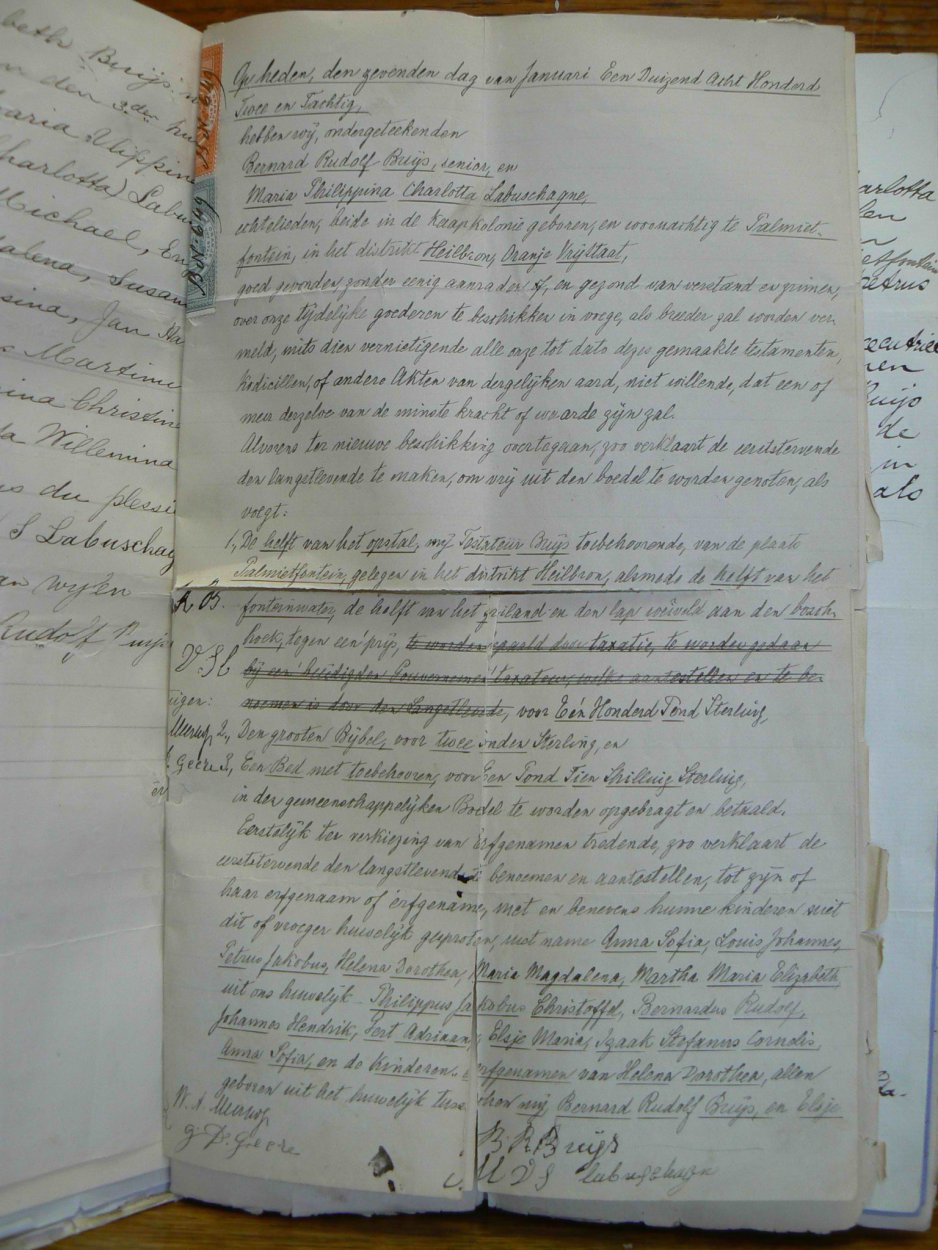 beth Buijs
den 3den hu
aria Philippin
Charlotta) Labu
Michael, En
dalena, Susan
sina, Jan
Martinu
ina Christin
a Willemina
us du plessi
S Labuschag
an wyken
Rudolf Buijs
BN 6/49
BN 6/49
Op heden, den zevenden dag van Januari Een Duizend Acht Honderd
Twee en Tachtig,
hebben wij, ondergeteekenden
Bernard Rudolf Buijs, senior, en
Maria Philippina Charlotta Labuschagne,
echtelieden, beide in de Kaapkolonie geboren, en woonachtig te Palmiet-
fontein, in het distrikt Heilbron, Oranje Vrijstaat,
goed gevonden, zonder eenig aanraden of, en gezond van verstand en zinnen,
over onze tijdelijke goederen te beschikken in voege, als breeder zal worden ver-
meld, mits dien vernietigende alle onze tot dato dezes gemaakte testamenten,
Kodicillen, of andere Akten van dergelijken aard, niet willende, dat een of
meer derzelve van de minste kracht of waarde zijn zal.
Alvorens ter nieuwe beschikking overtegaan, zoo verklaart de eerststervende
den langstlevende te maken, om vrij uit den boedel te worden genoten, als
volgt:
1., De helft van het opstal, mij Testateur Buijs toebehoorende, van de plaats
Palmietfontein, gelegen in het distrikt Heilbron, alsmede de helft van het
fonteinwater, de helft van het zaailand en den lap weiveld aan den bosch-
hoek, tegen een prijs, te worden bepaald door taxatie, te worden gedaan
bij een beëdigden Gouvernements taxateur, welke aantestellen en te be-
noemen is door den Langstlevende, voor Eén Honderd Pond Sterling,
2., Den grooten Bijbel, voor twee Ponden Sterling, en
3., Een Bed met toebehooren, voor Een Pond Tien Shilling Sterling,
in den gemeenschappelijken Boedel te worden opgebragt en betaald.
Eerstelijk ter verkiezing van Erfgenamen tredende, zoo verklaart de
eerststervende den langstlevende te benoemen en aantestellen, tot zijn of
haar erfgenaam of erfgename, met en benevens hunne kinderen uit
dit of vroeger huwelijk gesproten, met name Anna Sofia, Louis Johannes,
Petrus Jakobus, Helena Dorothea, Maria Magdalena, Martha Maria Elizabeth
uit ons huwelijk - Philippus Jakobus Christoffel, Bernardus Rudolf,
Johannes Hendrik, Gert Adriaan, Elsje Maria, Izaak Stefanus Cornelis,
Anna Sofia, en de kinderen erfgenamen van Helena Dorothea, allen
geboren uit het huwelijk tusschen mij, Bernard Rudolf Buijs, en Elsje
B. R. Buijs
M D S labuschagn
G. D. Geere
arlotta
etrus
Buijs
de
in
als